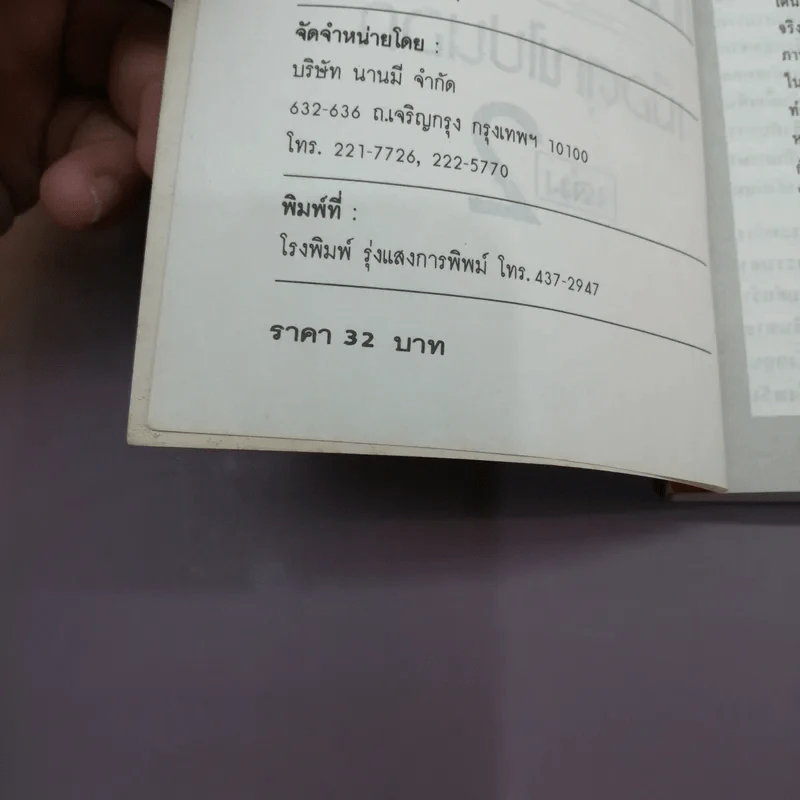 จัดจำหน่ายโดย :
บริษัท นานมี จำกัด
632-636 ถ.เจริญกรุง กรุงเทพฯ 10100
โทร. 221-7726, 222-5770
พิมพ์ที่ :
โรงพิมพ์ รุ่งแสงการพิพม์ โทร. 437-2947
ราคา 32 บาท